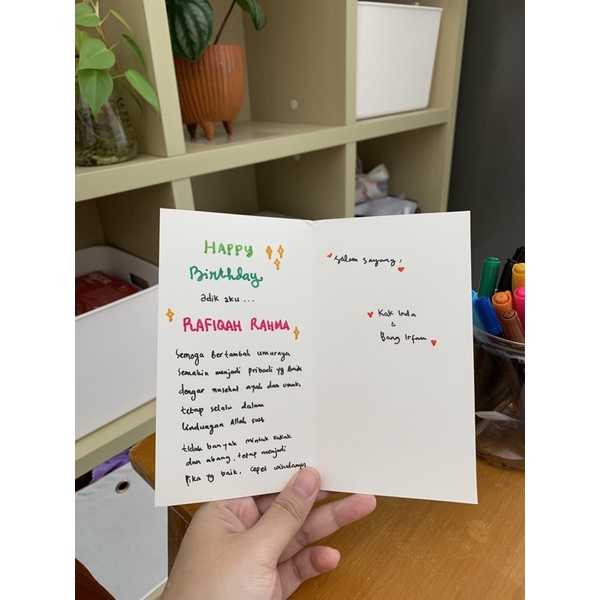 HAPPY
Birthday
adik aku ...
RAFIQAH RAHMA
Semoga Bertambah umurnya
semakin menjadi pribadi yg baik
dengar nasehat ayah dan umak,
tetap selalu dalam
lindungan Allah swt
tidak banyak mintak kakak
dan abang, tetap menjadi
fika yg baik, cepet wisudanya
Salam sayang,
Kak Inda
&
Bang Irfan